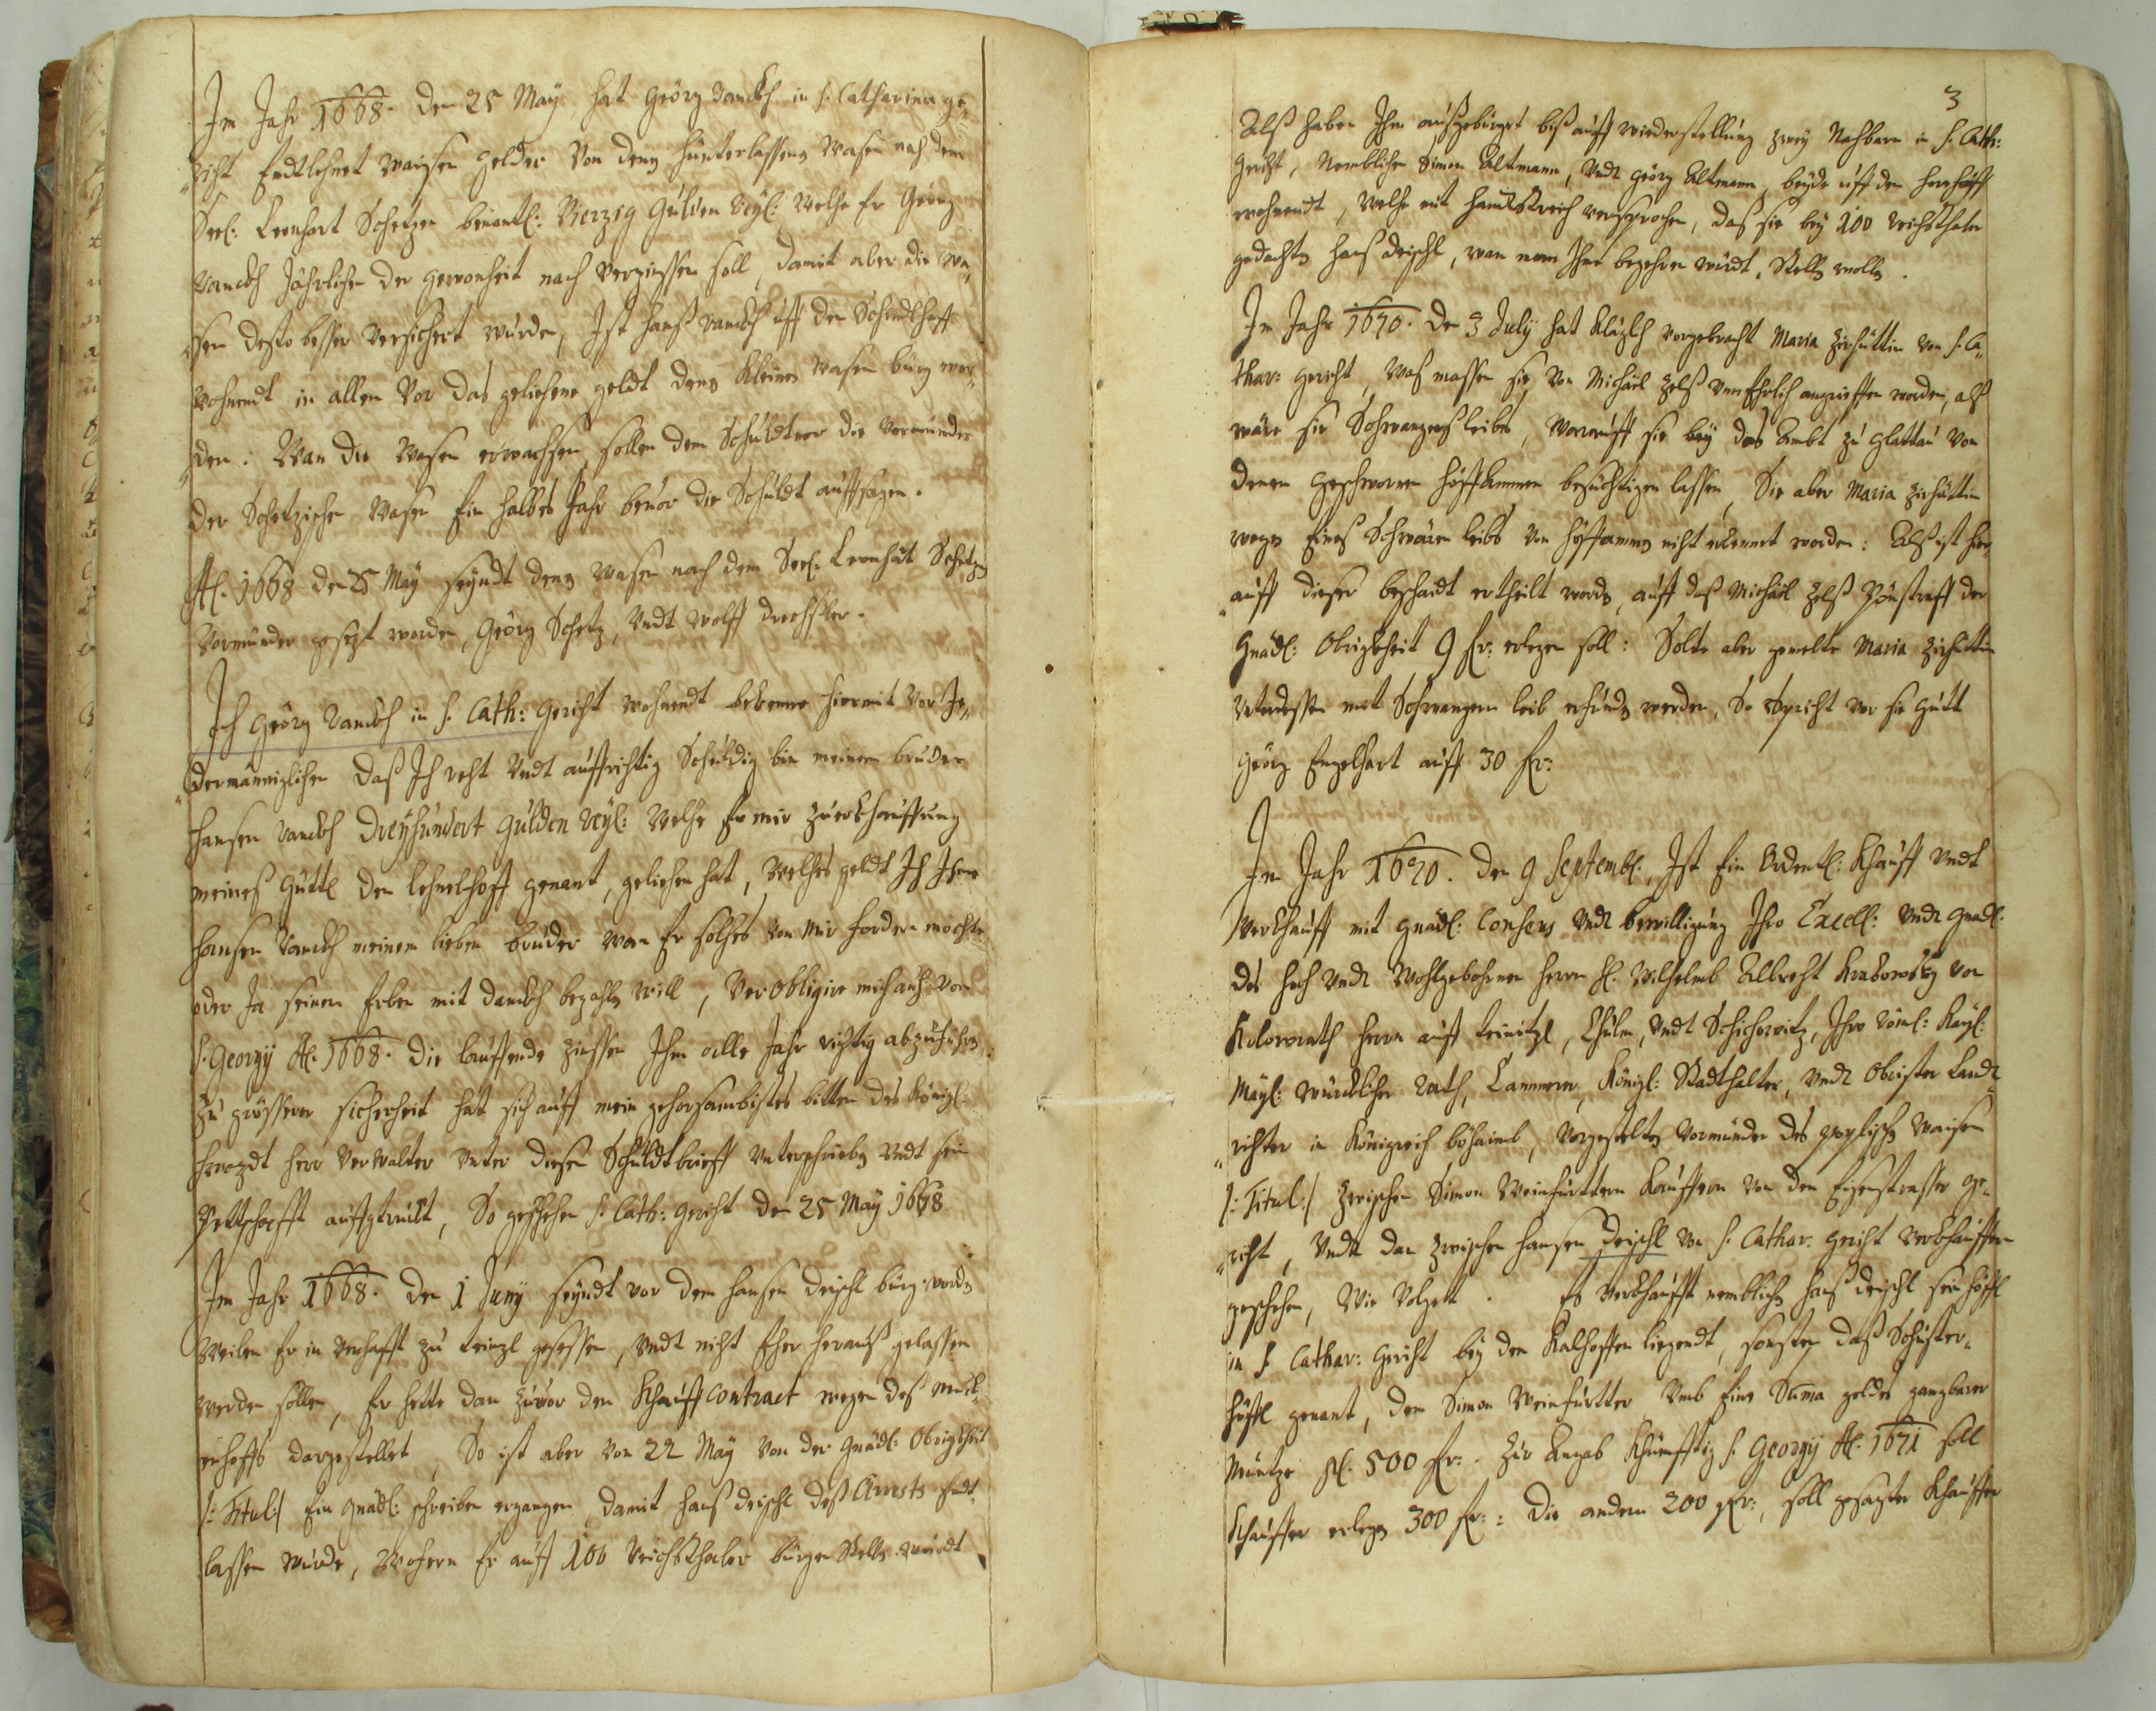 Im Jahr 1668. den 25 Maÿ hat Geörg Vanckh in S. Catharina ge„
„richt Endtlehnet waisen gelder Von denen hünterlassenen Wasen nach dem
Seel: Leonhart Schetzen benantl: Vierzig Gulden Reÿl: welche Er Geörg
Vanckh Jährlichen der gewonheit nach verzinssen soll, damit aber die Wa„
„sen desto besser versichert wurden, Ist Hanß Vanckh uff den Schindlhoff
Wohnendt in allen Vor das geliehene geldt denen Kleinen Wasen bürg wor„
„den: Wan die Wasen erwachsen, sollen dem Schuldtner die Vormünder
der Schetzischen Wasen Ein halbes Jahr bevor die Schuldt auffsagen.
A. 1668 den 25 Maÿ seÿndt denen Wasen nach dem Seel: Leonhart Schetzen
Vormünder gesetzt worden, Geörg Schetz, Undt Wolff Drechsler.
Ich Geörg Vanckh in S. Cath: Gericht wohnendt bekenne hiermit Vor Je„
„dermänniglichen Daß Ich recht Undt auffrichtig Schuldig bin meinem bruder
Hansen Vanckh Dreÿhundert Gulden Reÿl: Welche Er mir zu erkhauffung
meines Güttl den Lehnelhoff genant, geliehen hat, Welches geldt Ich Ihme
Hansen Vanckh meinem lieben bruder wan Er solches von mir fordern möchte
oder Ja seinen Erben mit danckh bezahlen will, Ver obligire mich auch von
S. Georgÿ A. 1668. die lauffende Zinssen Ihm alle Jahr richtig abzuführen:
Zu grösserer sicherheit hat sich auff mein gehorsambstes bitten des Königl:
Hwozdt Herr Verwalter Unter diesen Schuldtbrieff Unterschrieben Undt sein
Pettschafft auffgetruckt, So geschehen S. Cath: Gericht den 25 Maÿ 1668
Im Jahr 1668. den 1 Junÿ seÿndt vor dem Hansen Drischl bürg worden
Weilen Er in Verhafft zu Teinzl gesessen, Undt nicht Eher herauß gelassen
werden sollen, Er hette dan zuvor den Khauff Contract wegen deß
hoffs dargestellet, So ist aber von 22 Maÿ von der Gnädl: Obrigkheit
/: Titul :/ Ein Gnädl: schreiben ergangen, damit Hanß Drischl deß Arrests Endt„
lassen wurde, Wofern Er auff 100 Reichsthaler bürgen stellen würdt
3
Alß haben Ihm außgebürget biß auff wiederstellung zweÿ Nachbarn in S. Cath:
Gericht, Nemblichen Simon Altmann, Undt Geörg Altmann, beÿde uff den
wohnendt, welche mit handtstreich versprochen, daß sie beÿ 100 Reichsthaler
gedachten Hanß Drischl, wan man Ihn begehren würdt, stellen wollen.
Im Jahr 1670. den 3 Julÿ hat Kläglich vorgebracht Maria Zirhüttin von S. Ca„
thar: Gericht, Was massen sie von Michäel Zelß Unehrlich angrieffen worden, alß
wäre sie Schwangers leibs, Worauff sie beÿ das Ambt zu Glattau von
denen geschworenen Höffammen besüchtigen lassen, Sie aber Maria Zirhüttin
wegen Eines Schwären leibs von Höffammen nicht erkennet worden: Alß ist hier„
„auff dieser bescheidt ertheilt worden, auff daß Michäel Zelß Pönstraff der
Gnädl: Obrigkheit 9 fl: erlegen soll: Solte aber gemelte Maria Zirhüttin
Unterdessen mit Schwangern leib erfunden werden, So spricht vor sie gutt
Geörg Engelhart auff 30 fl:
Im Jahr 1670. den 9 Septembl. Ist Ein Ordentl: Khauff Undt
Verkhauff mit Gnädl: Consens Undt bewilligung Ihro Excell: Undt Gnadl:
des Hoch Undt Wohlgebohrnen Herrn H. Wilhelmb Albrecht Krakowskÿ von
Kolowrath Herrn auff Teinitzl, Chulm, Undt Schichowitz, Ihro Röml: Kaÿl:
Maÿl: würcklicher Rath, Cammerer, Königl: Stadthalter, Undt Obrister Landt
„richter in Königreich böhaimb, vorgestelten Vormünder des Waisen
/: Titul :/ Zwischen Simon Weinfurttern Kauffern von den Eisenstrasser Ge„
„richt, Undt dan zwischen Hansen Drischl von S. Cathar. Gericht Verkhauffern
geschehen, Wie Volgett. Es verkhaufft nemblichen Hanß Drischl sein höffl
in S. Cathar: Gericht beÿ den Kalhoffen liegendt, sonsten daß Schuster„
höffl genant, dem Simon Weinfurtter Umb Eine Suma geldes gangbarer
Müntze pl. 500 fl:. Zur Angab Khünfftig S. Georgÿ A. 1671 soll
Khauffer erlegen 300 fl:: Die andern 200 fl:, soll gesagter Khauffer